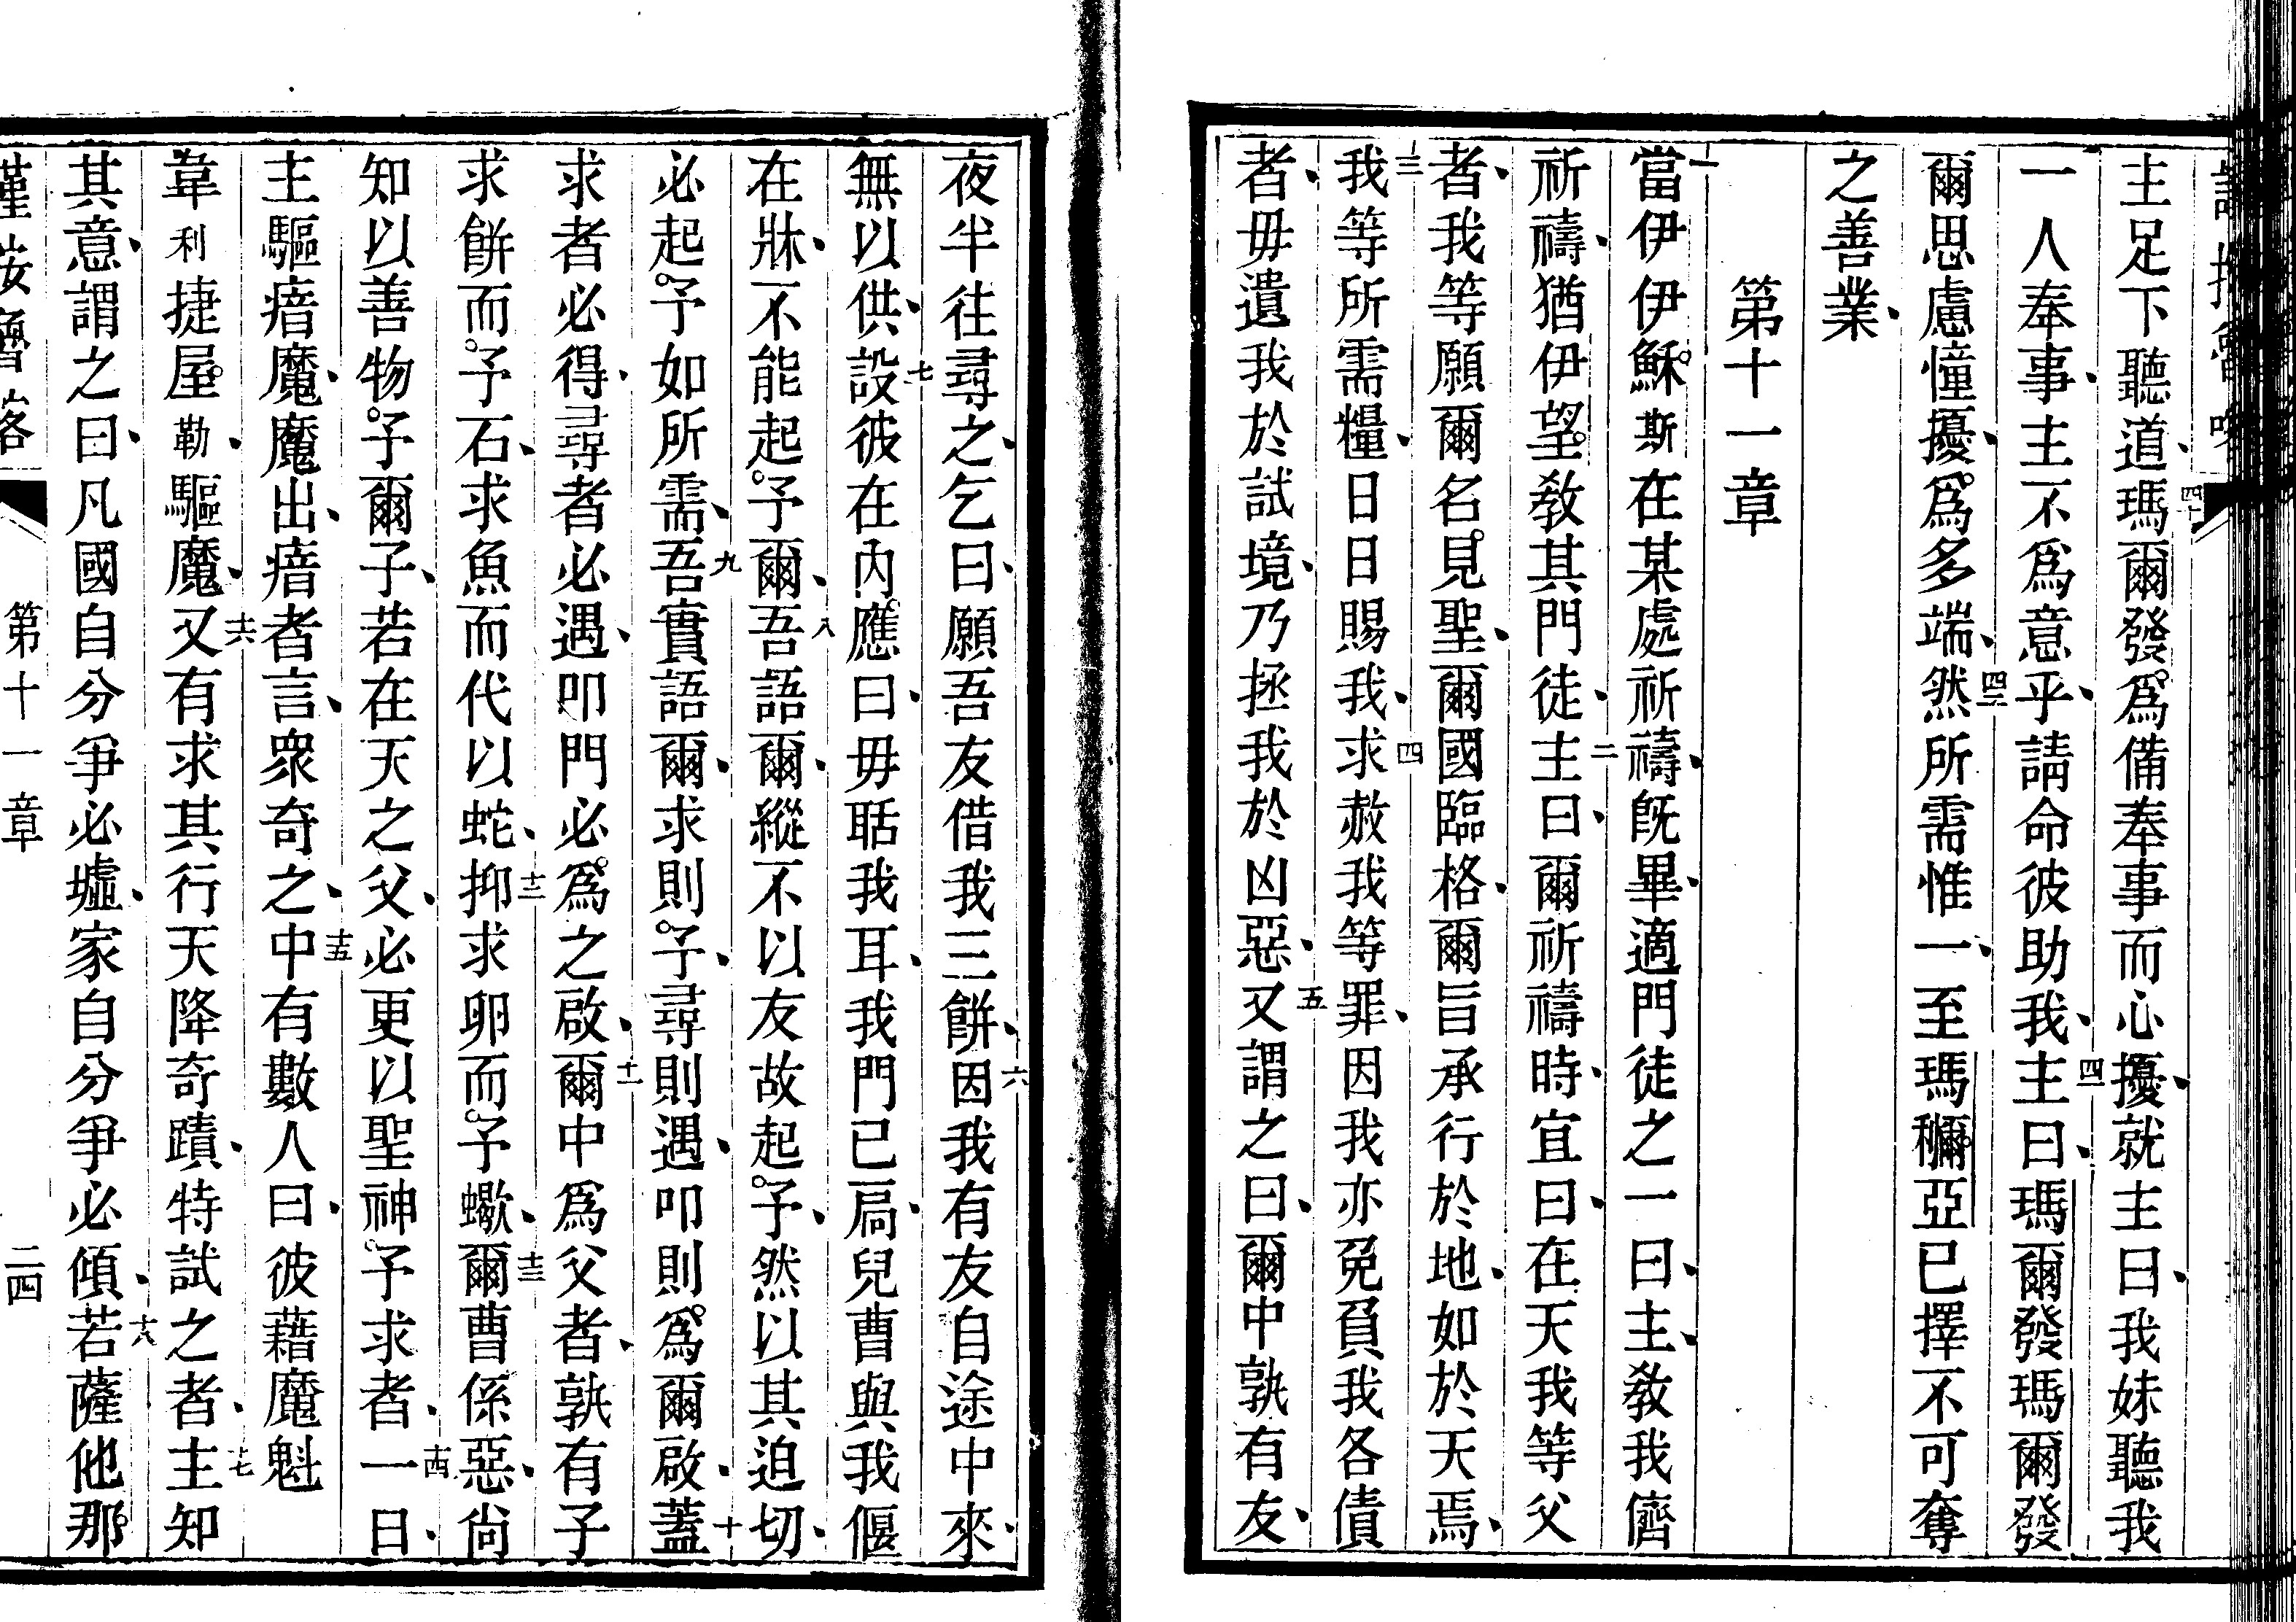 主足下聽道、瑪爾發。爲備奉事而心擾、就主曰、我妹聽我
一人奉事、主不爲意乎、請命彼助我、主曰、瑪爾發瑪爾發
爾思慮憧擾。爲多端、然所需惟一、至瑪穪亞已擇不可奪
之善業、
第十一章
當伊伊穌斯在某處祈禱、旣畢、適門徒之一曰、主、敎我儕
祈禱、猶伊望。敎其門徒、主曰、爾祈禱時、宜曰、在天我等父
者、我等願爾名。見聖、爾國臨格、爾旨承行於地、如於天焉、
我等所需糧、日日賜我、求赦我等罪、因我亦免負我各債
者、毋遺我於試境、乃拯我於凶惡、又謂之曰、爾中孰有友、
夜半往尋之、乞曰、願吾友借我三餅、因我有友自途中來、
無以供、設彼在內。應曰、毋聒我耳、我門已扃、兒曹與我偃
在牀、不能起。予爾、吾語爾、縱不以友故起。予、然以其迫切、
必起。予如所需、吾實語爾、求則。予、尋則遇、叩則。爲爾啟、蓋
求者必得、尋者必遇、叩門必。爲之啟、爾中爲父者、孰有子
求餅而。予石、求魚而代以蛇、抑求卵而。予蠍、爾曹係惡、尙
知以善物。予爾子、若在天之父、必更以聖神。予求者、一日、
主驅瘖魔、魔出、瘖者言、衆奇之、中有數人曰、彼藉魔魁
韋利捷屋。勒、驅魔、又有求其行天降奇蹟、特試之者、主知
其意、謂之曰、凡國自分爭必墟、家自分爭必傾、若薩他那
第十一章
二四